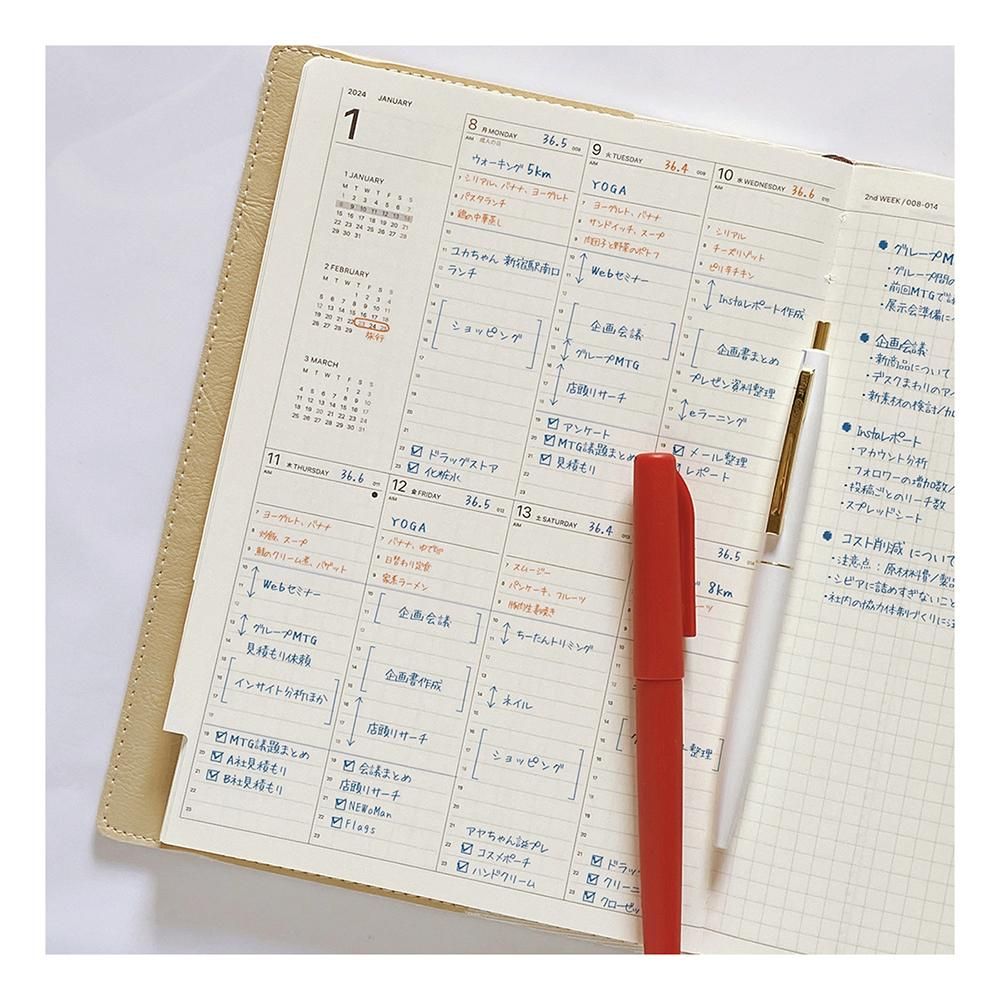 2024 JANUARY
1
1 JANUARY
M T W T F S S
1 2 3 4 5 6 7
8 9 10 11 12 13 14
15 16 17 18 19 20 21
22 23 24 25 26 27 28
29 30 31
2 FEBRUARY
M T W T F S S
1 2 3 4
5 6 7 8 9 10 11
12 13 14 15 16 17 18
19 20 21 22 23 24 25
26 27 28 29
旅行
3 MARCH
M T W T F S S
1 2 3
4 5 6 7 8 9 10
11 12 13 14 15 16 17
18 19 20 21 22 23 24
25 26 27 28 29 30 31
8 月 MONDAY 36.5 008
AM 成人の日
ウォーキング 5km
シリアル、バナナ、ヨーグルト
パスタランチ
鶏の中華蒸し
ユカちゃん 新宿駅南口
ランチ
ショッピング
ドラッグストア
化粧水
9 火 TUESDAY 36.4 009
AM
YOGA
ヨーグルト、バナナ
サンドイッチ、スープ
肉団子と野菜のポトフ
Webセミナー
企画会議
グループMTG
店頭リサーチ
アンケート
MTG議題まとめ
見積もり
10 水 WEDNESDAY 36.6 010
AM
シリアル
チーズリゾット
ピリ辛チキン
Instaレポート作成
企画書まとめ
プレゼン資料整理
eラーニング
メール整理
レポート
11 木 THURSDAY 36.6 011
AM
ヨーグルト、バナナ
炒飯、スープ
鮭のクリーム煮、バゲット
Webセミナー
グループMTG
見積もり依頼
インサイト分析ほか
MTG議題まとめ
A社見積もり
B社見積もり
12 金 FRIDAY 36.5 012
AM
YOGA
バナナ、ゆで卵
日替わり定食
家系ラーメン
企画会議
企画書作成
店頭リサーチ
会議まとめ
店頭リサーチ
NEWoMan
Flags
13 土 SATURDAY 36.4 013
AM
スムージー
パンケーキ、フルーツ
豚肉生姜焼き
ちーたんトリミング
ネイル
ショッピング
アヤちゃん誕プレ
コスメポーチ
ハンドクリーム
36.5
8km
整理
ドラッ
クリーニ
クローゼッ
2nd WEEK / 008-014
グループM
・グループ間の
・前回MTGで
・展示会準備に
企画会議
・新商品について
・デスクまわりのア
・新素材の検討/カ
Instaレポート
・アカウント分析
・フォロワーの増加数/
・投稿ごとのリーチ数
・スプレッドシート
コスト削減 について
・注意点：原材料費/製
・シビアに詰めすぎないこと
・社内の協力体制づくりに